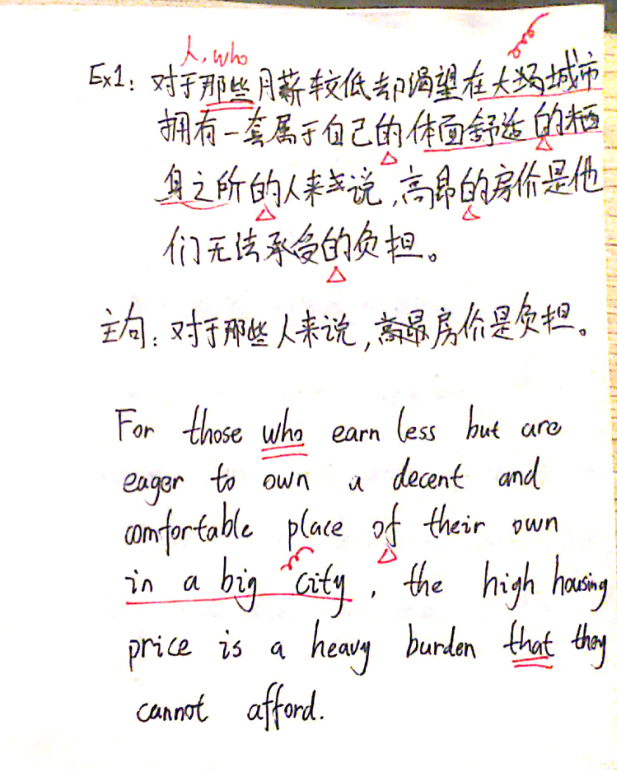 人，who
Ex1：对于那些月薪较低却渴望在大城市
拥有一套属于自己的体面舒适的栖
身之所的人来说，高昂的房价是他
们无法承受的负担。
主句：对于那些人来说，高昂房价是负担。
For those who earn less but are
eager to own a decent and
comfortable place of their own
in a big city, the high housing
price is a heavy burden that they
cannot afford.